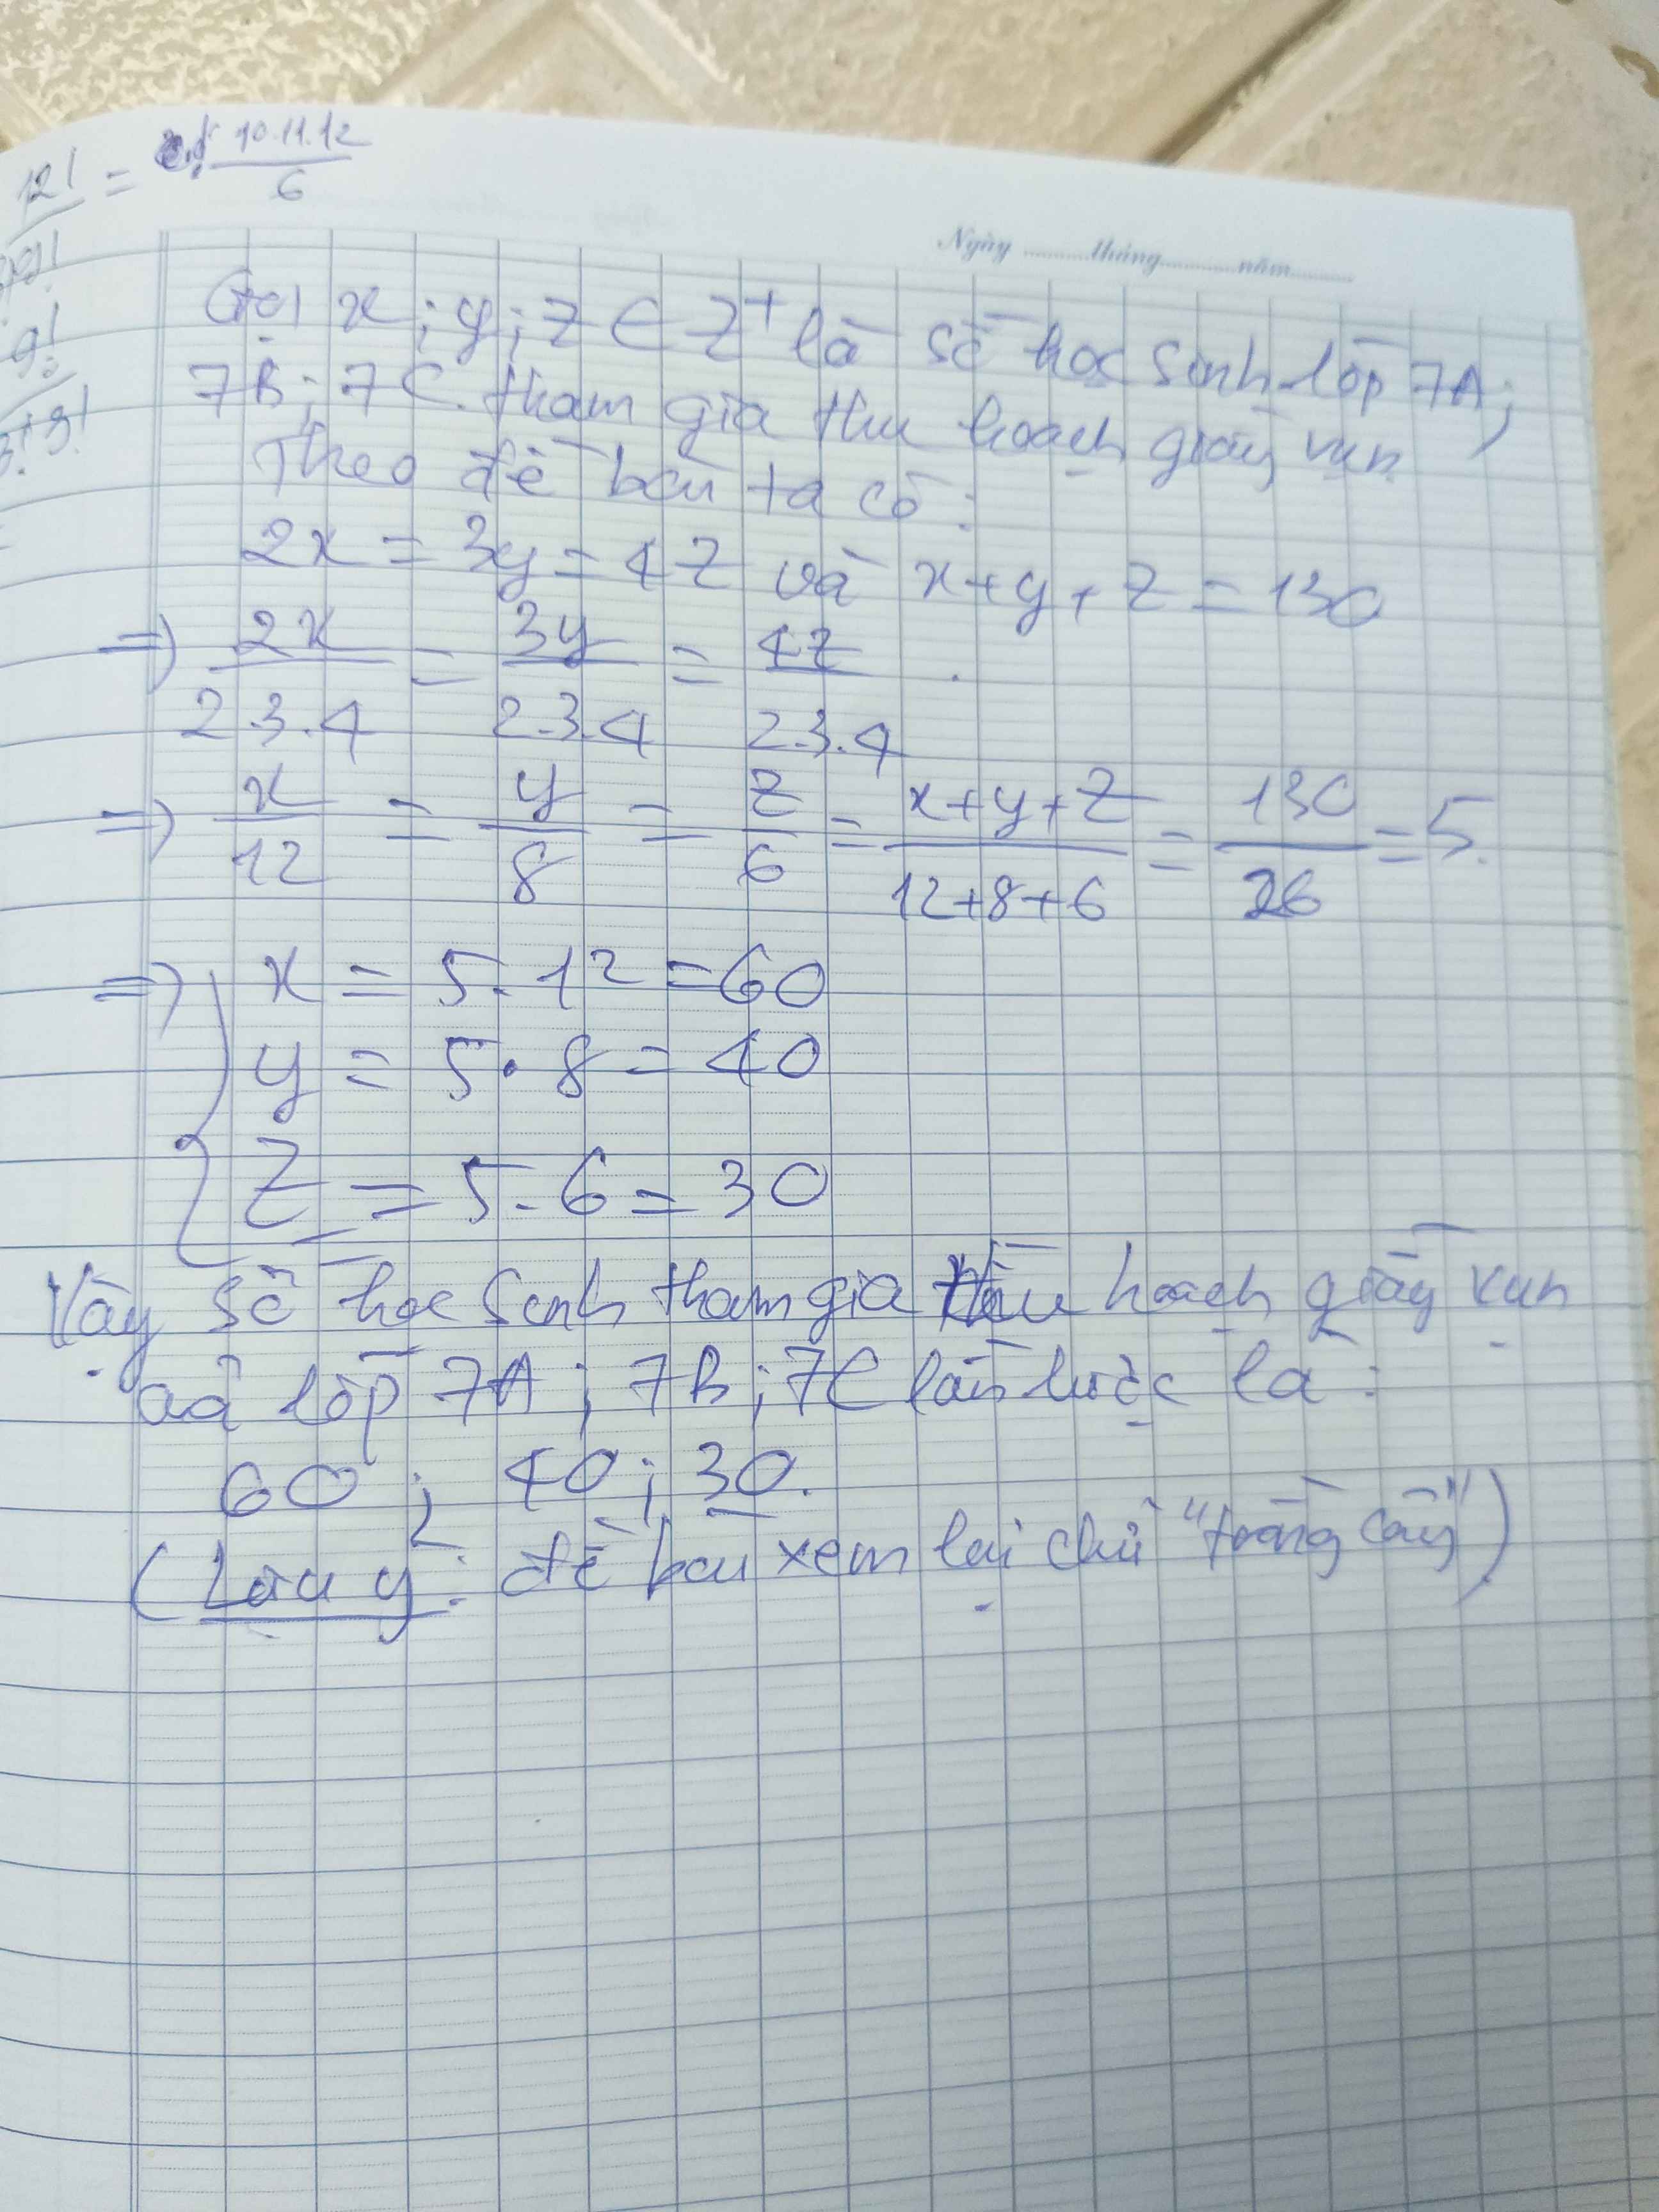 12! = 10.11.12
6
9!
Ngày ........ tháng ........ năm ........
Gọi x; y; z ∈ Z⁺ là số học sinh lớp 7A;
7B; 7C tham gia thu hoạch giấy vụn
Theo đề bài ta có:
2x = 3y = 4z và x+y+z = 130
=> 2x = 3y = 4z
2.3.4 2.3.4 2.3.4
=> x = y = z = x+y+z = 130 = 5
12 8 6 12+8+6 26
=> x = 5.12 = 60
y = 5.8 = 40
z = 5.6 = 30
Vậy số học sinh tham gia thu hoạch giấy vụn
của lớp 7A; 7B; 7C lần lược là:
60; 40; 30.
(Lưu ý: đề bài xem lại chữ "trồng cây")